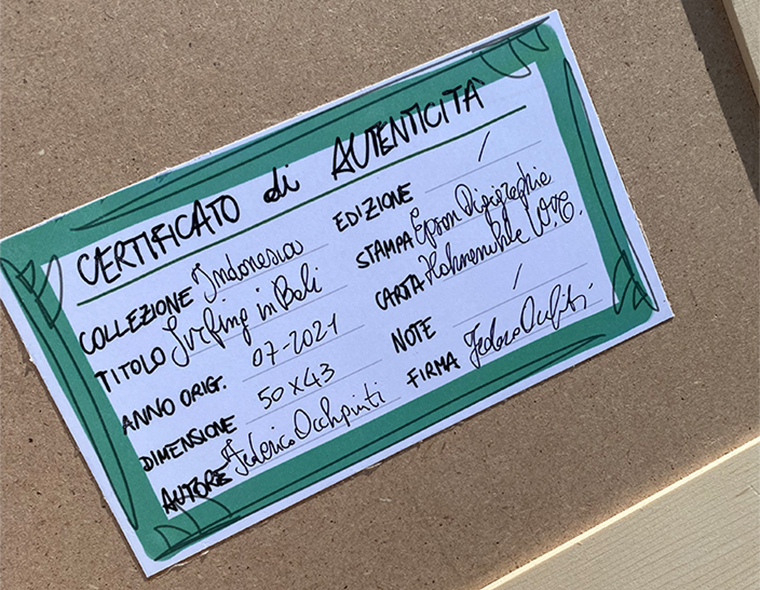 CERTIFICATO di AUTENTICITÀ
COLLEZIONE Indonesia
TITOLO Surfing in Bali
ANNO ORIG. 07-2021
DIMENSIONE 50x43
AUTORE Federico Occhipinti
EDIZIONE /
STAMPA Epson Digigraphie
CARTA Hahnemühle W.E.
NOTE /
FIRMA Federico Occhipinti